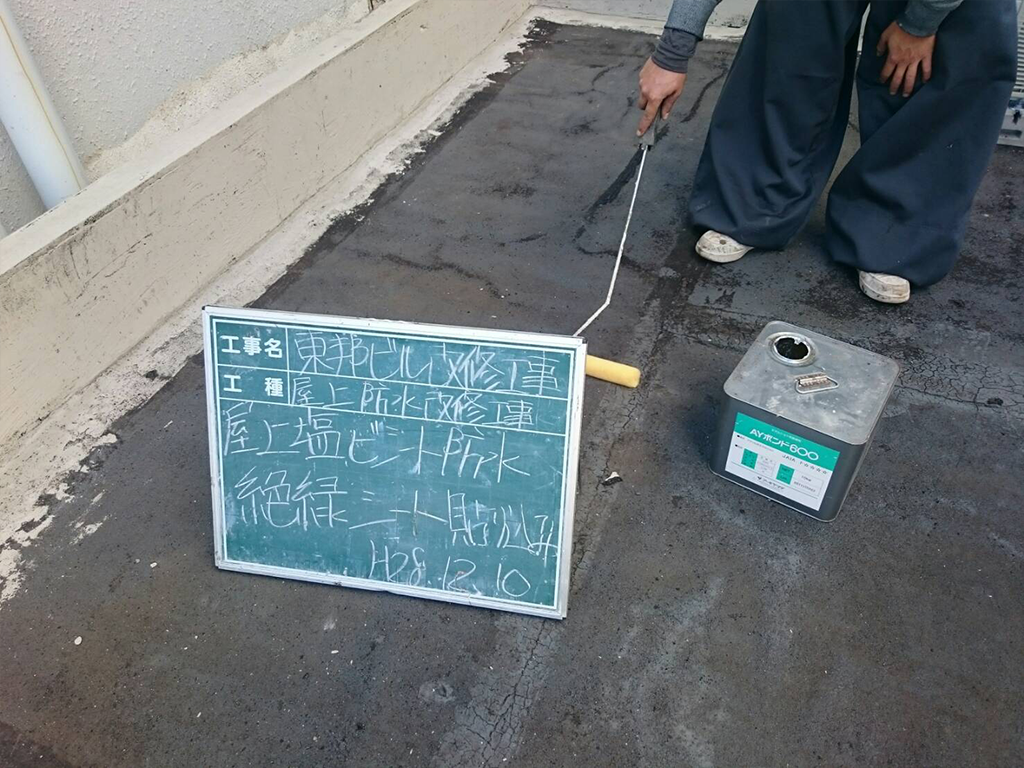 工事名 東邦ビル改修工事
工種 屋上防水改修工事
屋上塩ビシート防水
絶縁シート貼り込み
H28.12.10
AYボンド600